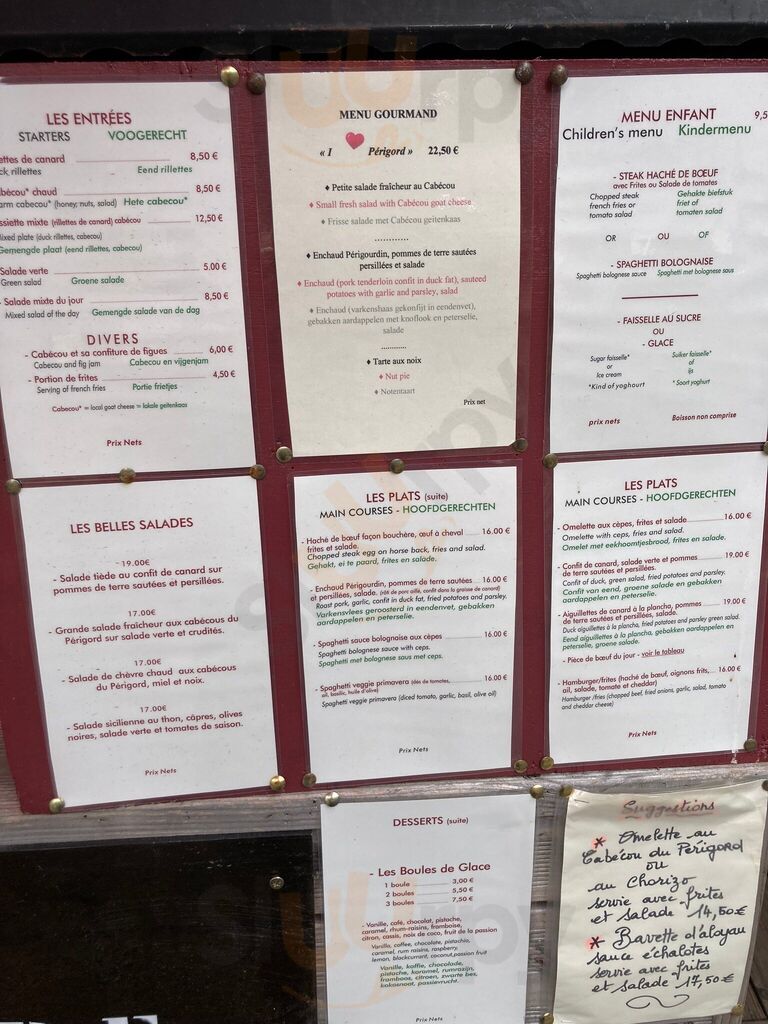 LES ENTRÉES
STARTERS VOOGERECHT
ettes de canard 8,50 €
ck rillettes Eend rillettes
bécou* chaud 8,50 €
arm cabecou* (honey, nuts, salad) Hete cabecou*
ssiette mixte (rillettes de canard) cabécou 12,50 €
ixed plate (duck rillettes, cabecou)
Gemengde plaat (eend rillettes, cabecou)
Salade verte 5.00 €
Green salad Groene salade
- Salade mixte du jour 8,50 €
Mixed salad of the day Gemengde salade van de dag
DIVERS
- Cabécou et sa confiture de figues 6,00 €
Cabecou and fig jam Cabecou en vijgenjam
- Portion de frites 4,50 €
Serving of french fries Portie frietjes
Cabecou* = local goat cheese = lokale geitenkaas
Prix Nets
MENU GOURMAND
« I ♥ Périgord » 22,50 €
♦ Petite salade fraîcheur au Cabécou
♦ Small fresh salad with Cabécou goat cheese
♦ Frisse salade met Cabécou geitenkaas
............
♦ Enchaud Périgourdin, pommes de terre sautées
persillées et salade
♦ Enchaud (pork tenderloin confit in duck fat), sauteed
potatoes with garlic and parsley, salad
♦ Enchaud (varkenshaas gekonfijt in eendenvet),
gebakken aardappelen met knoflook en peterselie,
salade
............
♦ Tarte aux noix
♦ Nut pie
♦ Notentaart
Prix net
MENU ENFANT 9,5
Children's menu Kindermenu
- STEAK HACHÉ DE BŒUF
avec Frites ou Salade de tomates
Chopped steak Gehakte biefstuk
french fries or friet of
tomato salad tomaten salad
OR OU OF
- SPAGHETTI BOLOGNAISE
Spaghetti bolognese sauce Spaghetti met bolognese saus
- FAISSELLE AU SUCRE
OU
- GLACE
Sugar faisselle* Suiker faisselle*
or of
Ice cream ijs
*Kind of yoghourt * Soort yoghurt
prix nets Boisson non comprise
LES BELLES SALADES
- 19.00€
- Salade tiède au confit de canard sur
pommes de terre sautées et persillées.
17.00€
- Grande salade fraîcheur aux cabécous du
Périgord sur salade verte et crudités.
17.00€
- Salade de chèvre chaud aux cabécous
du Périgord, miel et noix.
17.00€
- Salade sicilienne au thon, câpres, olives
noires, salade verte et tomates de saison.
Prix Nets
LES PLATS (suite)
MAIN COURSES - HOOFDGERECHTEN
- Haché de bœuf façon bouchère, œuf à cheval 16.00 €
frites et salade.
Chopped steak egg on horse back, fries and salad.
Gehakt, ei te paard, frites en salade.
- Enchaud Périgourdin, pommes de terre sautées 16.00 €
et persillées, salade. (rôti de porc aillé, confit dans la graisse de canard)
Roast pork, garlic, confit in duck fat, fried potatoes and parsley.
Varkensvlees geroosterd in eendenvet, gebakken
aardappelen en peterselie.
- Spaghetti sauce bolognaise aux cèpes 16.00 €
Spaghetti bolognese sauce with ceps.
Spaghetti met bolognese saus met ceps.
- Spaghetti veggie primavera (dés de tomates, 16.00 €
ail, basilic, huile d'olive)
Spaghetti veggie primavera (diced tomato, garlic, basil, olive oil)
Prix Nets
LES PLATS
MAIN COURSES - HOOFDGERECHTEN
- Omelette aux cèpes, frites et salade 16.00 €
Omelette with ceps, fries and salad.
Omelet met eekhoorntjesbrood, frites en salade.
- Confit de canard, salade verte et pommes 19.00 €
de terre sautées et persillées.
Confit of duck, green salad, fried potatoes and parsley.
Confit van eend, groene salade en gebakken
aardappelen en peterselie.
- Aiguillettes de canard à la plancha, pommes 19.00 €
de terre sautées et persillées, salade.
Duck aiguillettes à la plancha, fried potatoes and parsley green salad.
Eend aiguillettes à la plancha, gebakken aardappelen en
peterselie, groene salade.
- Pièce de bœuf du jour - voir le tableau
- Hamburger/frites (haché de bœuf, oignons frits, 16.00 €
ail, salade, tomate et cheddar)
Hamburger /fries (chopped beef, fried onions, garlic, salad, tomato
and cheddar cheese)
Prix Nets
DESSERTS (suite)
- Les Boules de Glace
1 boule 3,00 €
2 boules 5,50 €
3 boules 7,50 €
- Vanille, café, chocolat, pistache,
caramel, rhum-raisins, framboise,
citron, cassis, noix de coco, fruit de la passion
Vanilla, coffee, chocolate, pistachio,
caramel, rum raisins, raspberry,
lemon, blackcurrant, coconut,passion fruit
Vanille, koffie, chocolade,
pistache, karamel, rumrazijn,
framboos, citroen, zwarte bes,
kokosnoot, passievrucht.
Prix Nets
Suggestions
* Omelette au
Cabécou du Périgord
ou
au Chorizo
servie avec frites
et salade 14,50€
* Bavette d'aloyau
sauce échalotes
servie avec frites
et salade 17,50€